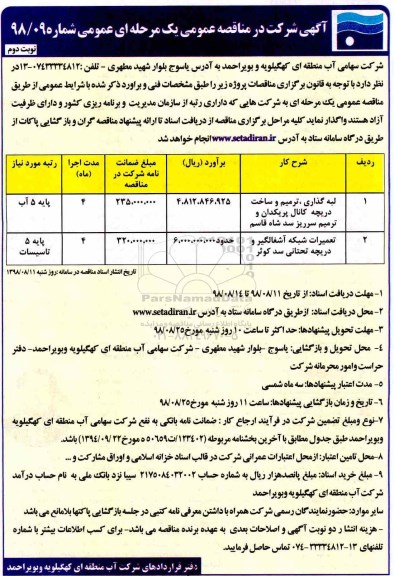 آگهی شرکت در مناقصه عمومی یک مرحله ای عمومی شماره ۹۸/۰۹
نوبت دوم
شرکت سهامی آب منطقه ای کهگیلویه و بویراحمد به آدرس یاسوج بلوار شهید مطهری - تلفن :۰۷۴۳۳۳۳۴۸۱۲-۱۳در
نظر دارد با توجه به قانون برگزاری مناقصات پروژه زیر را طبق مشخصات فنی و برآورد ذکر شده با شرایط عمومی از طریق
مناقصه عمومی یک مرحله ای به شرکت هایی که داراری رتبه از سازمان مدیریت و برنامه ریزی کشور و دارای ظرفیت
آزاد هستند واگذار نماید کلیه مراحل برگزاری مناقصه از دریافت اسناد تا ارائه پیشنهاد مناقصه گران و باز گشایی پاکات از
طریق درگاه سامانه ستاد به آدرس www.setadiran.ir انجام خواهد شد
ردیف شرح کار برآورد (ریال) مبلغ ضمانت نامه شرکت در مناقصه مدت اجرا (ماه) رتبه مورد نیاز
۱ لبه گذاری ،ترمیم و ساخت دریچه کانال پریکدان و ترمیم سرریز سد شاه قاسم ۴،۸۱۲،۸۴۶،۹۲۵ ۲۳۵،۰۰۰،۰۰۰ ۴ پایه ۵ آب
۲ تعمیرات شبکه آشغالگیر و دریچه تحتانی سد کوثر حدود ۶،۰۰۰،۰۰۰،۰۰۰ ۳۲۰،۰۰۰،۰۰۰ ۴ پایه ۵ تاسیسات
تاریخ انتشار اسناد مناقصه در سامانه :روز شنبه ۱۳۹۸/۰۸/۱۱
۱- مهلت دریافت اسناد: از تاریخ ۹۸/۰۸/۱۱ تا ۹۸/۰۸/۱۴
۲- محل دریافت اسناد: ازطریق درگاه سامانه ستاد به آدرس www.setadiran.ir
۳- مهلت تحویل پیشنهادها: حداکثر تا ساعت ۱۰ روز شنبه مورخ۹۸/۰۸/۲۵
۴- محل تحویل و بازگشایی: یاسوج -بلوار شهید مطهری - شرکت سهامی آب منطقه ای کهگیلویه وبویراحمد- دفتر
حراست وامور محرمانه شرکت
۵- مدت اعتبار پیشنهادها: سه ماه شمسی
۶- تاریخ و زمان بازگشایی پیشنهادها: ساعت ۱۱ روز شنبه مورخ۹۸/۰۸/۲۵
۷-نوع ومبلغ تضمین شرکت در فرآیند ارجاع کار : ضمانت نامه بانکی به نفع شرکت سهامی آب منطقه ای کهگیلویه
وبویراحمد طبق جدول مطابق با آخرین بخشنامه مربوطه (۱۲۳۴۰۲/ت۵۰۶۵۹ ه مورخ ۱۳۹۴/۰۹/۲۲) باشد.
۸-محل تامین اعتبار: ازمحل اعتبارات عمرانی شرکت در قالب اسناد خزانه اسلامی و اوراق مشارکت و...
۹-مبلغ خرید اسناد: مبلغ پانصدهزار ریال به شماره حساب ۲۱۷۵۰۸۴۰۳۲۰۰۲ سیبا نزد بانک ملی به نام حساب درآمد
شرکت آب منطقه ای کهگیلویه وبویراحمد
سایر موارد: حضورنمایندگان رسمی شرکت همراه با داشتن معرفی نامه کتبی در جلسه بازگشایی پاکتها بلامانع می باشد
- هزینه انتشار دو نوبت آگهی و اصلاحات بعدی به عهده برنده مناقصه می باشد- برای کسب اطلاعات بیشتر با شماره
تلفنهای ۱۳-۰۷۴-۳۳۳۳۴۸۱۲ تماس حاصل فرمایید.
دفتر قراردادهای شرکت آب منطقه ای کهگیلویه وبویراحمد